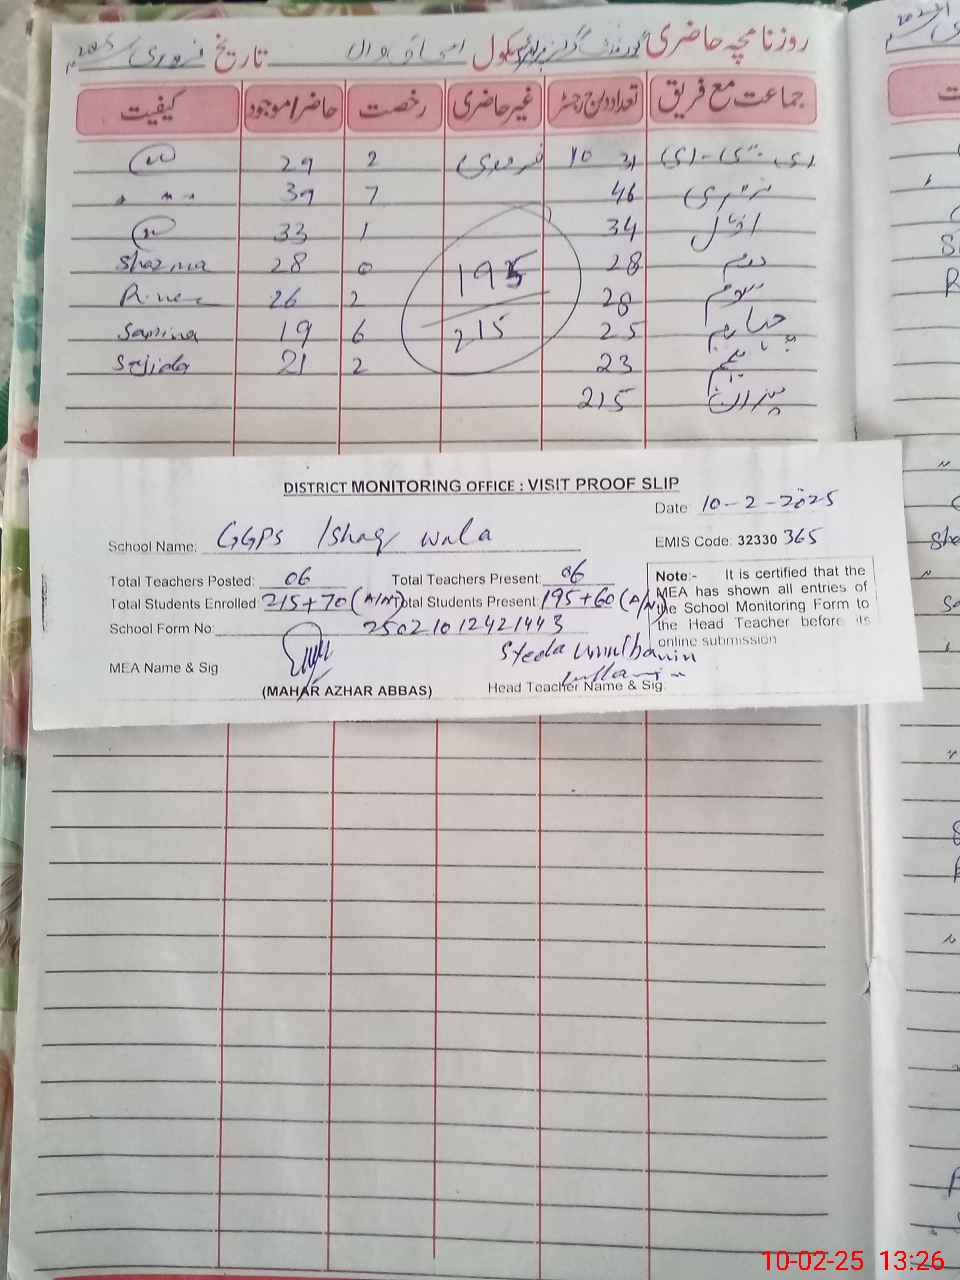 روزنامچہ حاضری گورنمنٹ گرلز پرائمری سکول اسحاق والا تاریخ فروری 2025
جماعت مع فریق تعداد درج رجسٹر غیر حاضری رخصت حاضر/موجود کیفیت
ای سی سی ای 31 10 فروری 2 29
نرسری 46 7 39
اول 34 1 33
دوم 28 0 28 Shazma
سوم 28 2 26
چہارم 25 6 19 Samina
پنجم 23 2 21 Sajida
میزان 215
195
215
DISTRICT MONITORING OFFICE : VISIT PROOF SLIP
Date 10-2-2025
School Name: GGPS Ishaq wala
EMIS Code: 32330 365
Total Teachers Posted: 06 Total Teachers Present: 06
Total Students Enrolled 215+70 (A/N) Total Students Present 195+60 (A/N)
School Form No 25021012421443
Note:- It is certified that the MEA has shown all entries of the School Monitoring Form to the Head Teacher before its online submission
MEA Name & Sig
(MAHAR AZHAR ABBAS)
Syeda Ummulbanin
Head Teacher Name & Sig.
10-02-25 13:26